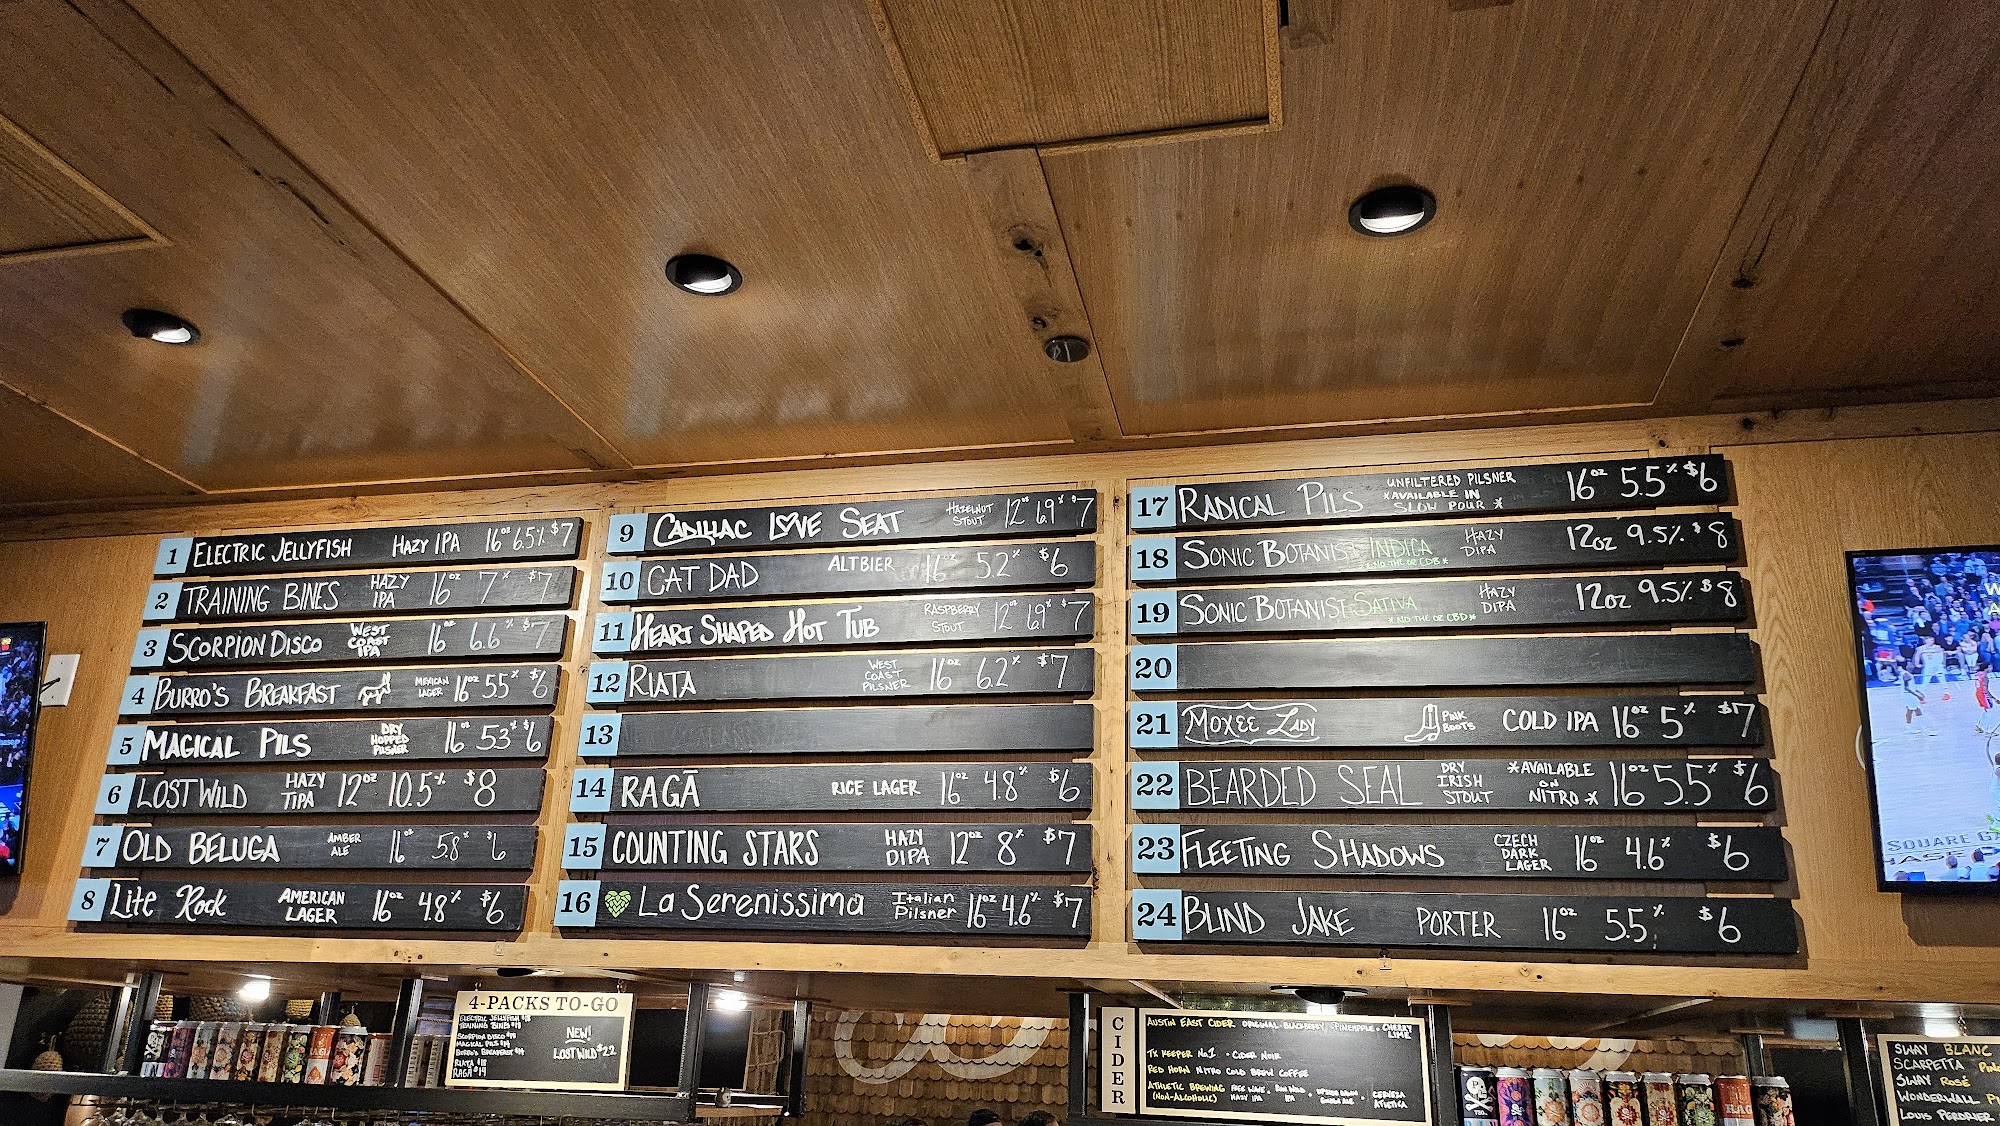 1 ELECTRIC JELLYFISH HAZY IPA 16oz 6.5% $7
2 TRAINING BINES HAZY IPA 16oz 7% $7
3 SCORPION DISCO WEST COAST IPA 16oz 6.6% $7
4 BURRO'S BREAKFAST MEXICAN LAGER 16oz 5.5% $6
5 MAGICAL PILS DRY HOPPED PILSNER 16oz 5.3% $6
6 LOST WILD HAZY TIPA 12oz 10.5% $8
7 OLD BELUGA AMBER ALE 16oz 5.8% $6
8 Lite Rock AMERICAN LAGER 16oz 4.8% $6
9 CADILLAC LOVE SEAT HAZELNUT STOUT 12oz 6.9% $7
10 CAT DAD ALTBIER 16oz 5.2% $6
11 HEART SHAPED HOT TUB RASPBERRY STOUT 12oz 6.9% $7
12 RIATA WEST COAST PILSNER 16oz 6.2% $7
13
14 RAGĀ RICE LAGER 16oz 4.8% $6
15 COUNTING STARS HAZY DIPA 12oz 8% $7
16 La Serenissima Italian Pilsner 16oz 4.6% $7
17 RADICAL PILS UNFILTERED PILSNER *AVAILABLE IN SLOW POUR* 16oz 5.5% $6
18 SONIC BOTANIST INDICA *NO THC OR CDB* HAZY DIPA 12oz 9.5% $8
19 SONIC BOTANIST SATIVA *NO THC OR CBD* HAZY DIPA 12oz 9.5% $8
20
21 MOXEE LADY PINK BOOTS COLD IPA 16oz 5% $7
22 BEARDED SEAL DRY IRISH STOUT *AVAILABLE ON NITRO* 16oz 5.5% $6
23 FLEETING SHADOWS CZECH DARK LAGER 16oz 4.6% $6
24 BLIND JAKE PORTER 16oz 5.5% $6
4-PACKS TO-GO
ELECTRIC JELLYFISH $18
TRAINING BINES $18
SCORPION DISCO $18
MAGICAL PILS $14
BURRO'S BREAKFAST $14
RIATA $18
RAGĀ $14
NEW!
LOST WILD $22
CIDER
AUSTIN EAST CIDER ORIGINAL · BLACKBERRY · PINEAPPLE · CHERRY LIME
TX KEEPER No.1 · CIDER NOIR
RED HORN NITRO COLD BREW COFFEE
ATHLETIC BREWING (NON-ALCOHOLIC) FREE WAVE HAZY IPA · RUN WILD IPA · UPSIDE DAWN GOLDEN ALE · CERVEZA ATLETICA
SWAY BLANC
SCARPETTA
SWAY ROSÉ
WONDERWALL
LOUIS PERDRIER
SQUARE